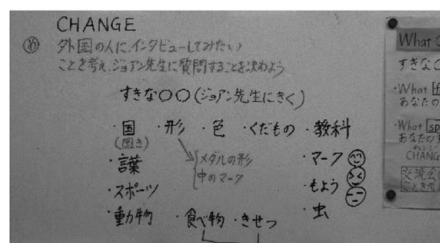 CHANGE
め 外国の人に、インタビューしてみたい
ことを考え、ジョアン先生に質問することを決めよう
すきな〇〇(ジョアン先生にきく)
・国 ・形 ・色 ・くだもの ・教科
・言葉 メダルの形 ・マーク
中のマーク
・スポーツ ・もよう
・動物 ・食べ物 ・きせつ ・虫
What
すきな
・What
あなたの
・What sp
あなたの
CHANG